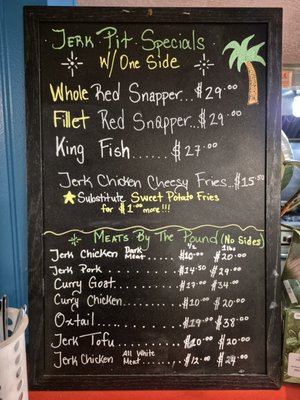 Jerk Pit Specials
W/ One Side
Whole Red Snapper...$29.00
Fillet Red Snapper...$29.00
King Fish......$27.00
Jerk Chicken Cheesy Fries...$15.50
Substitute Sweet Potato Fries
for $1.00 more!!!
Meats By The Pound (No Sides)
½ lb 1 lb
Jerk Chicken Dark Meat....$10.00 $20.00
Jerk Pork..........$14.50 $29.00
Curry Goat........$17.00 $34.00
Curry Chicken......$10.00 $20.00
Oxtail............$19.00 $38.00
Jerk Tofu.........$10.00 $20.00
Jerk Chicken All White Meat......$12.00 $24.00